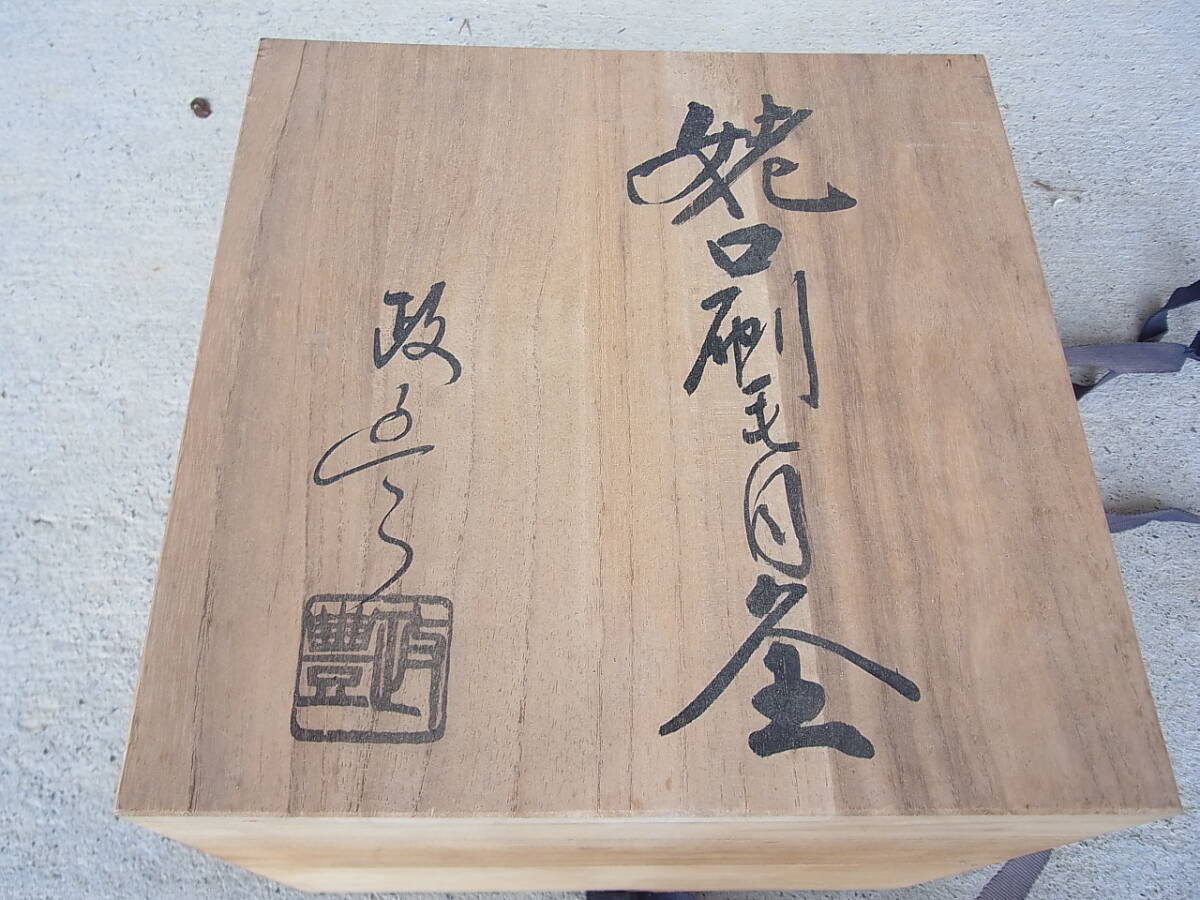 姥口刷毛目釜
政豊
政豊